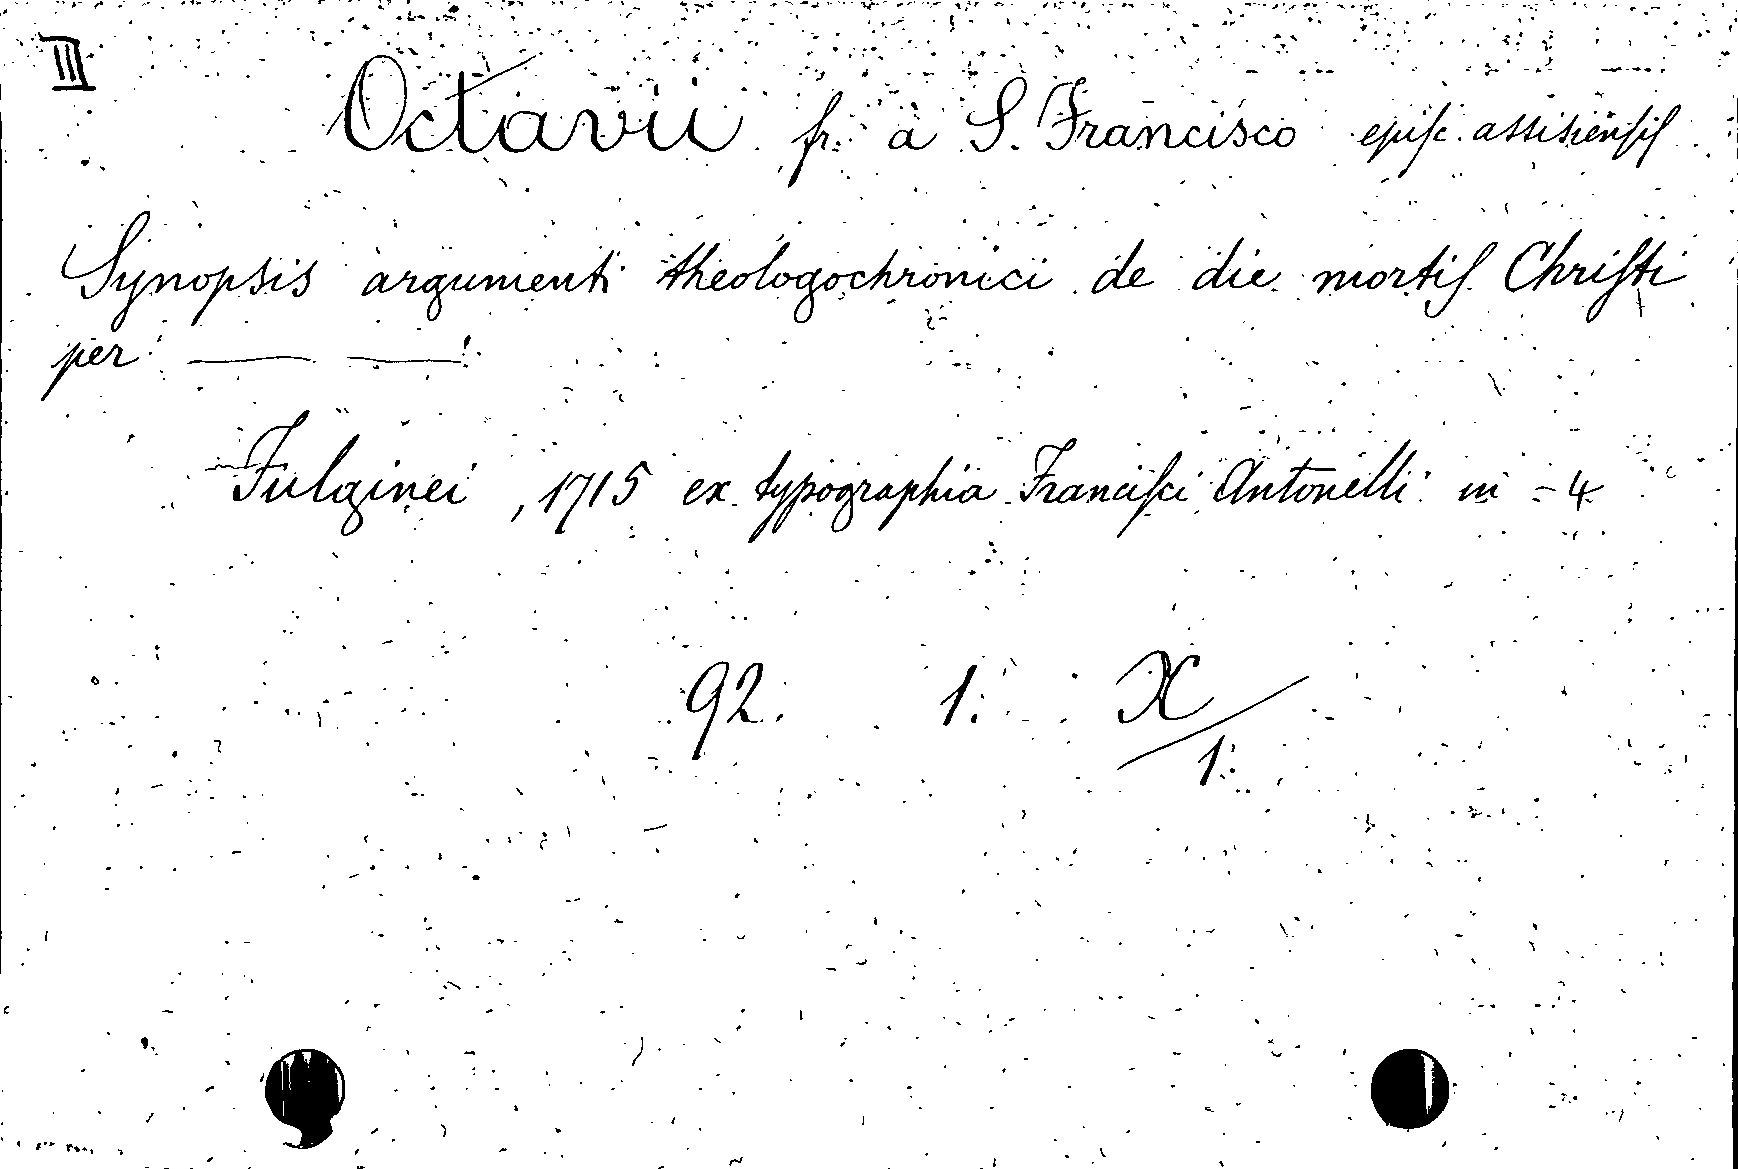 III
Octavii fr. a S. Francisco epiſc. assisienſiſ
Synopsis argumenti theologochronici de die mortiſ Chriſti
per — —
Fulginei, 1715 ex typographia Franciſci Antonelli in - 4
92. 1. X/1.